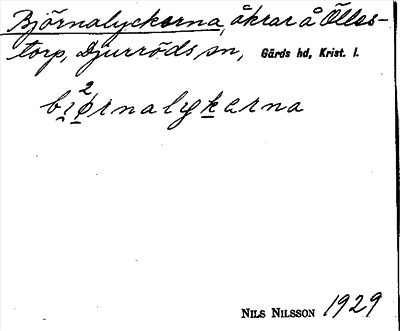 Björnalyckorna, åkrar å Ölles-
torp, Djurröds sn, Gärds hd, Krist. l.
bi2ørnalykarna
NILS NILSSON 1929